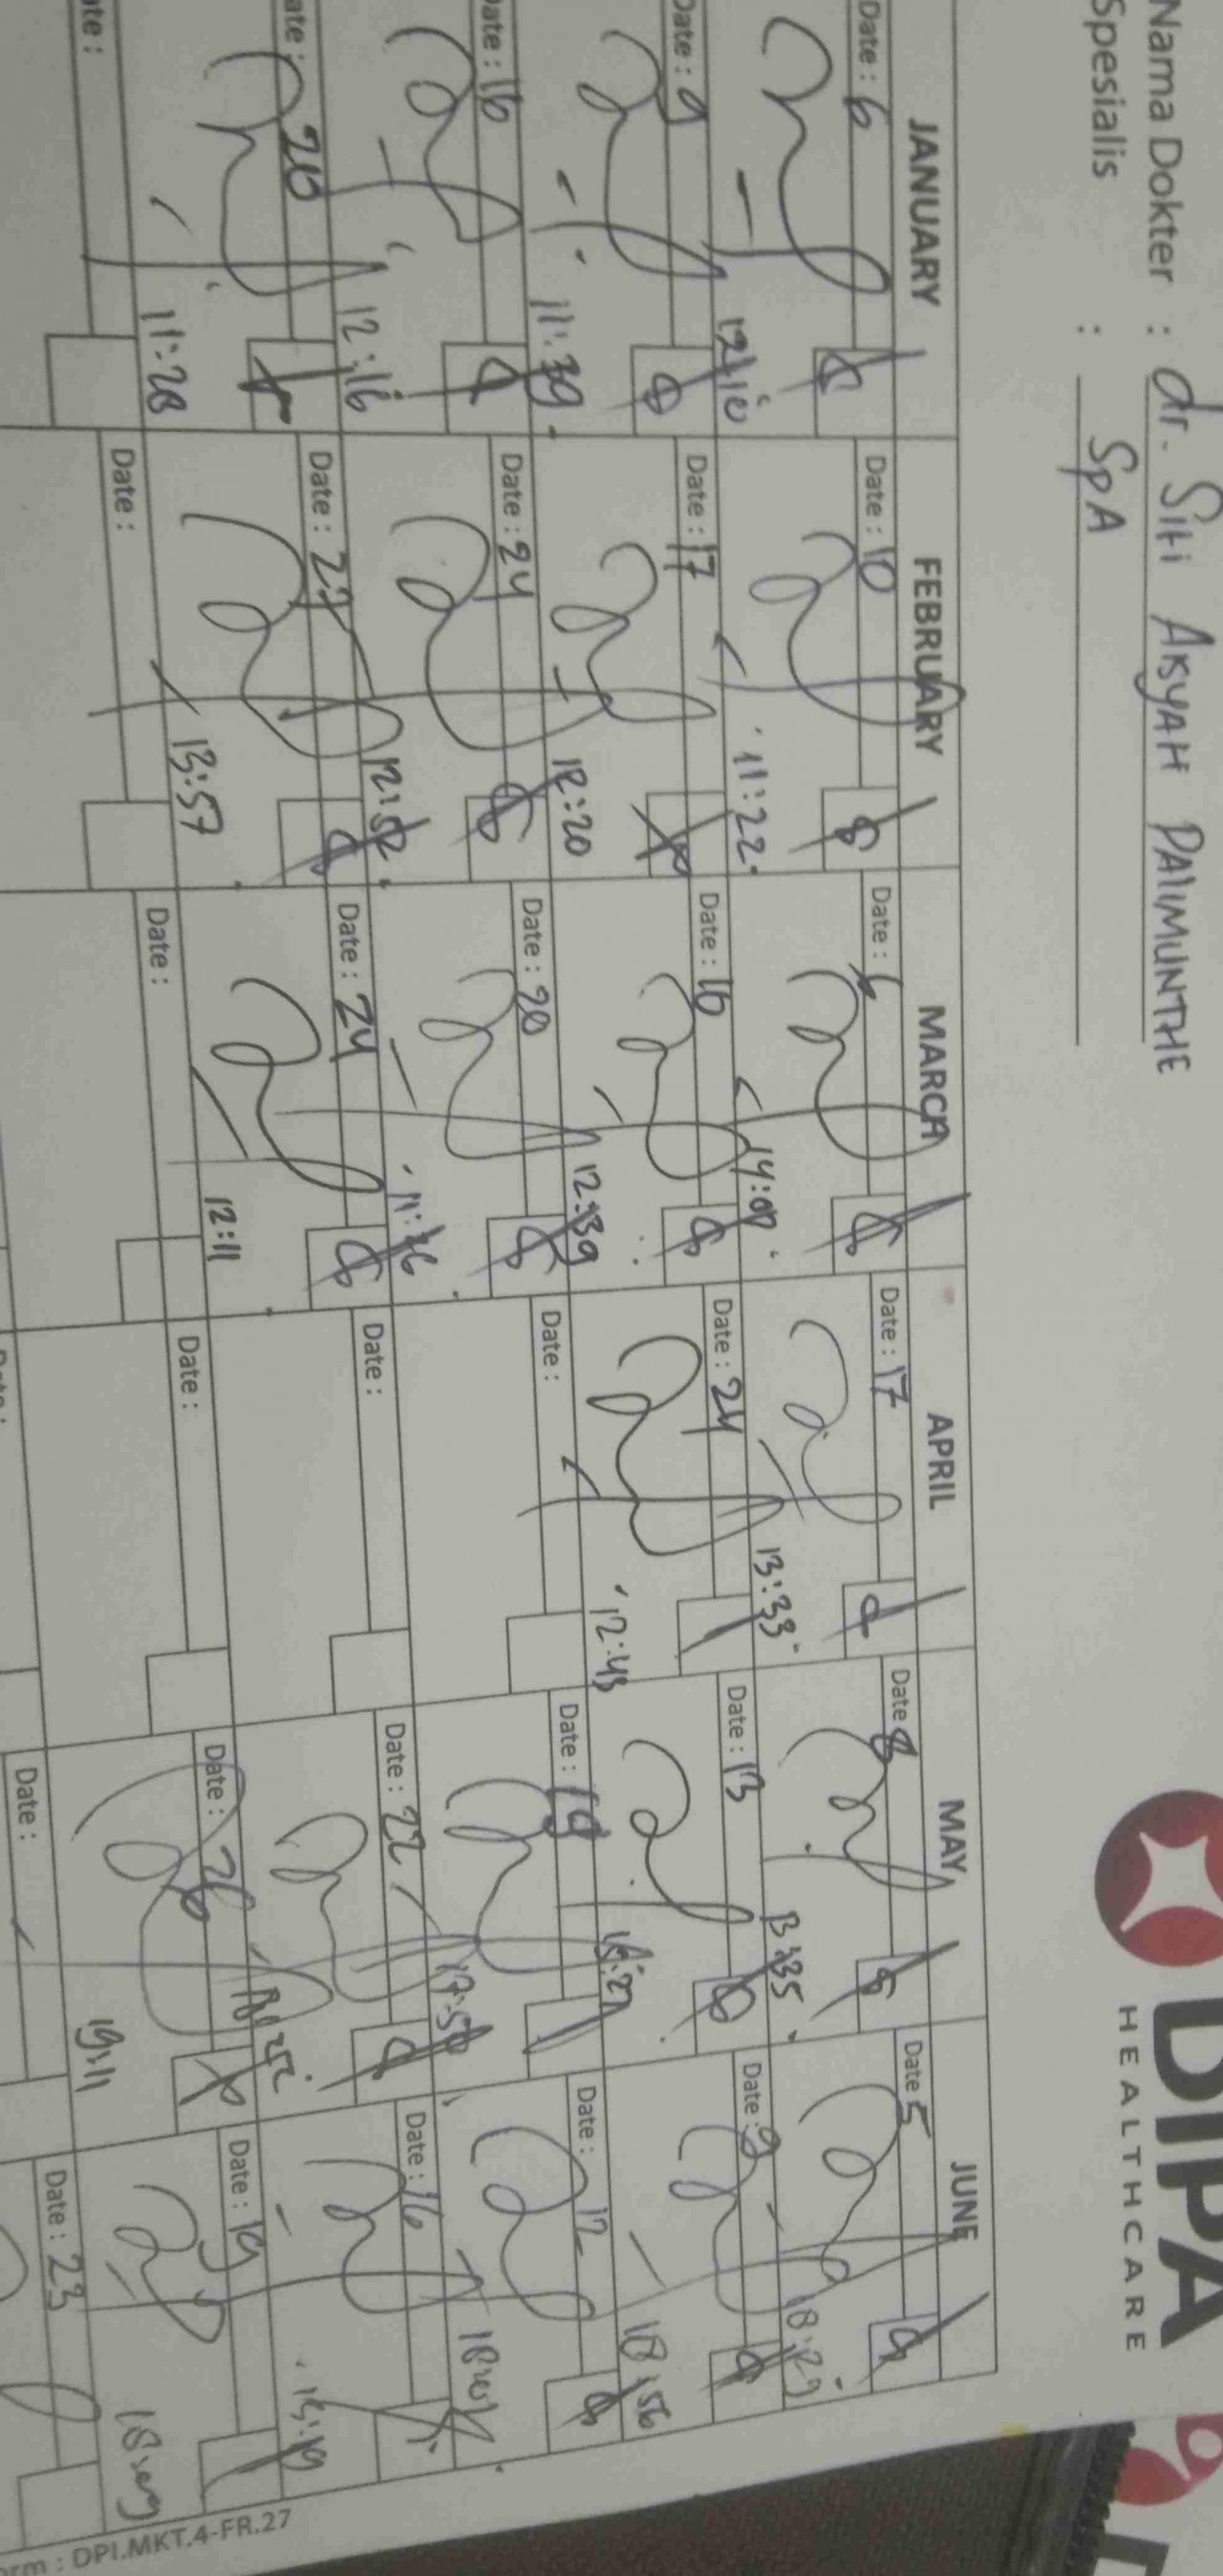 DIPA
HEALTHCARE
Nama Dokter : dr. Siti Aisyah Palimunthe
Spesialis : SpA
JANUARY FEBRUARY MARCH APRIL MAY JUNE
Date : 6 Date : 10 Date : 6 Date : 17 Date 8 Date 5
12:10 11:22 14:07 13:33 13:35 18:29
Date : 9 Date : 17 Date : 16 Date : 24 Date : 13 Date : 9
11:39 12:20 12:39 12:43 18:56
Date : 16 Date : 24 Date : 20 Date : Date : 19 Date : 12
12:16 12:52 11:36 17:50
Date : 20 Date : 27 Date : 24 Date : Date : 22 Date : 16
11:28 13:57 12:11
Date : Date : Date : Date : Date : 26 Date : 19
19:11
Date : Date : 23
Form : DPI.MKT.4-FR.27